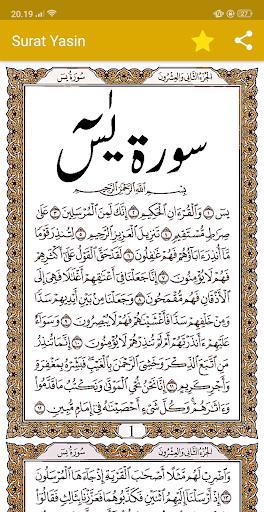 20.19
27
Surat Yasin
الجزء الثاني والعشرون
سورة يس
سورة يس
بسم الله الرحمن الرحيم
يس ۝١ والقرءان الحكيم ۝٢ إنك لمن المرسلين ۝٣ على
صراط مستقيم ۝٤ تنزيل العزيز الرحيم ۝٥ لتنذر قوما
ما أنذر ءاباؤهم فهم غافلون ۝٦ لقد حق القول على أكثرهم
فهم لا يؤمنون ۝٧ إنا جعلنا في أعناقهم أغلالا فهي إلى
الأذقان فهم مقمحون ۝٨ وجعلنا من بين أيديهم سدا
ومن خلفهم سدا فأغشيناهم فهم لا يبصرون ۝٩ وسواء
عليهم ءأنذرتهم أم لم تنذرهم لا يؤمنون ۝١٠ إنما تنذر
من اتبع الذكر وخشي الرحمن بالغيب فبشره بمغفرة
وأجر كريم ۝١١ إنا نحن نحي الموتى ونكتب ما قدموا
وءاثارهم وكل شيء أحصيناه في إمام مبين ۝١٢
1
الجزء الثاني والعشرون
سورة يس
واضرب لهم مثلا أصحاب القرية إذ جاءها المرسلون
۝١٣ إذ أرسلنا إليهم اثنين فكذبوهما فعززنا بثالث فقالوا